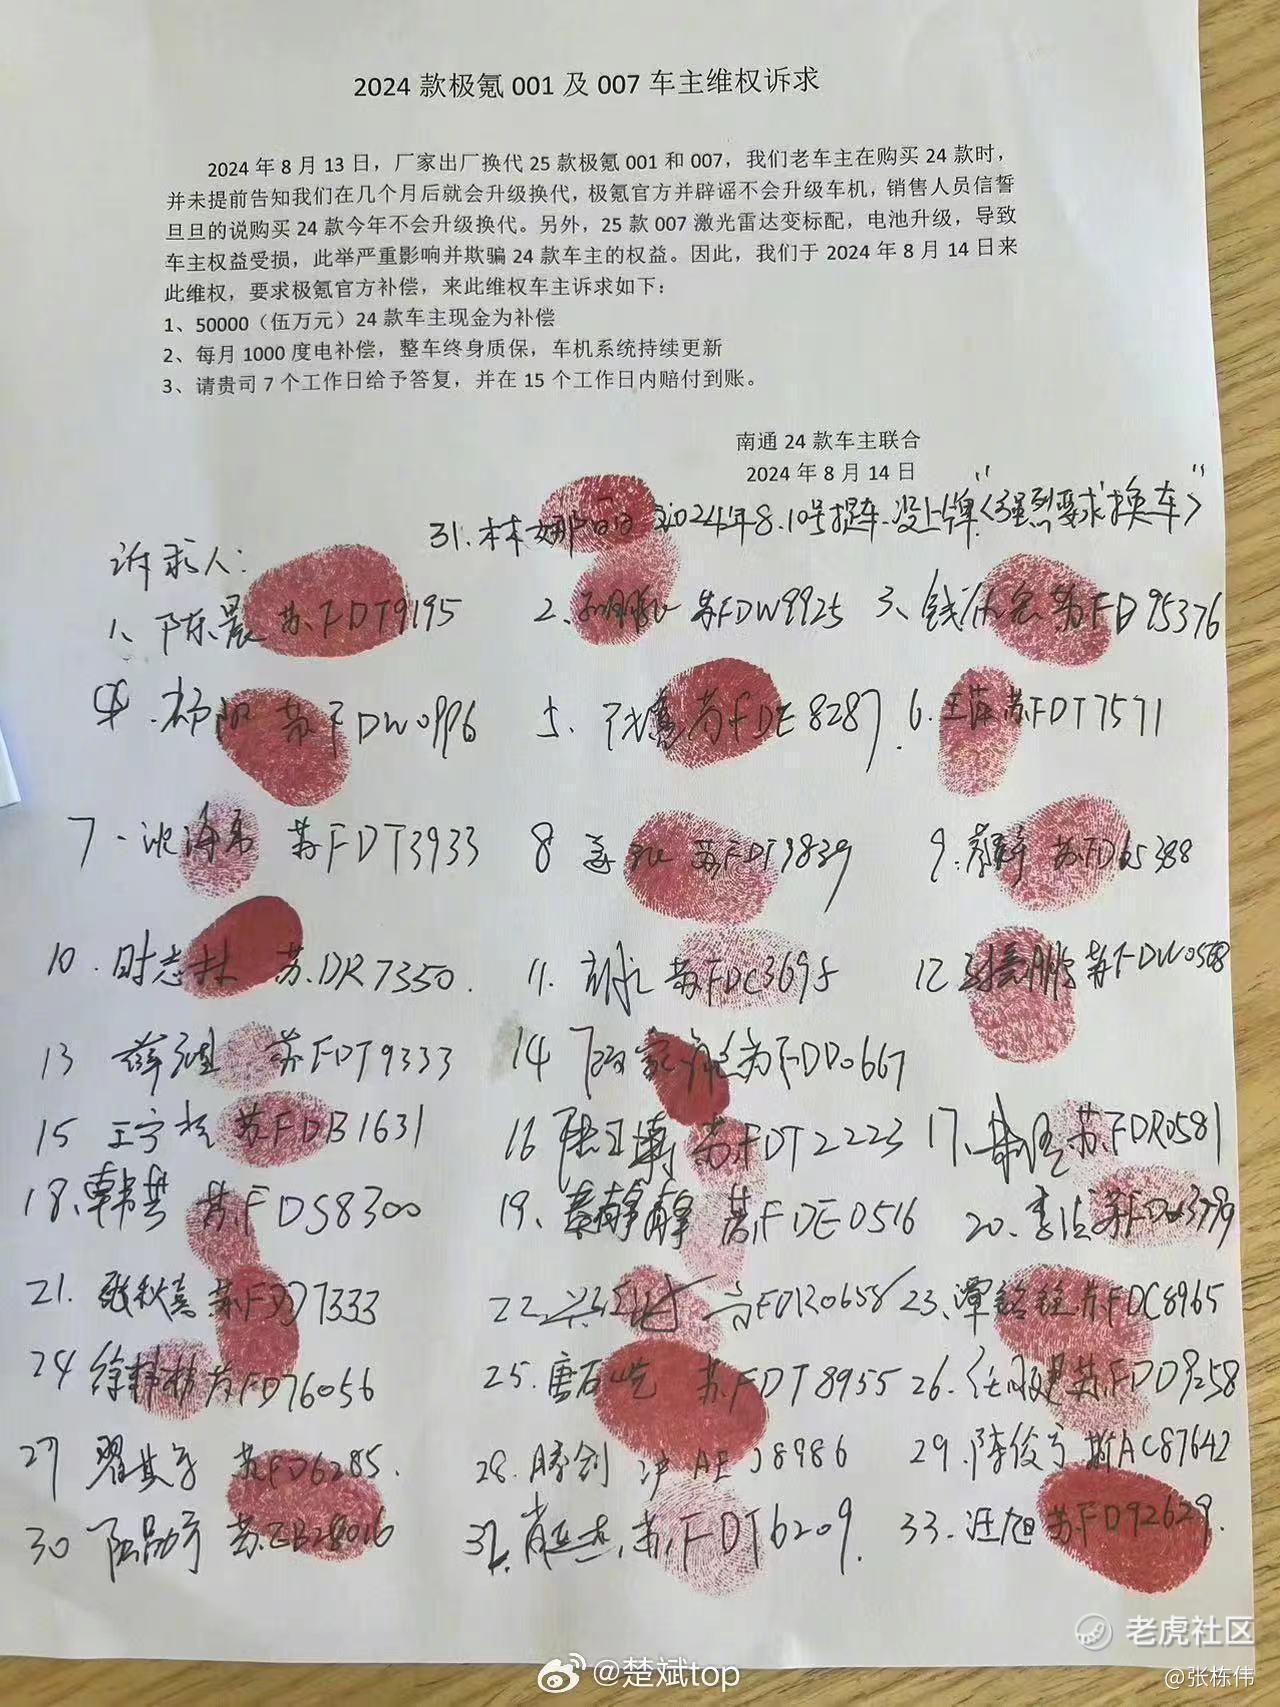 2024 款极氪 001 及 007 车主维权诉求
2024 年 8 月 13 日，厂家出厂换代 25 款极氪 001 和 007，我们老车主在购买 24 款时，
并未提前告知我们在几个月后就会升级换代，极氪官方并辟谣不会升级车机，销售人员信誓
旦旦的说购买 24 款今年不会升级换代。另外，25 款 007 激光雷达变标配，电池升级，导致
车主权益受损，此举严重影响并欺骗 24 款车主的权益。因此，我们于 2024 年 8 月 14 日来
此维权，要求极氪官方补偿，来此维权车主诉求如下：
1、50000（伍万元）24 款车主现金为补偿
2、每月 1000 度电补偿，整车终身质保，车机系统持续更新
3、请贵司 7 个工作日给予答复，并在 15 个工作日内赔付到账。
南通 24 款车主联合
2024 年 8 月 14 日
31. 林娜 2024年8.10号提车.没上牌"《强烈要求换车》"
诉求人：
1、陈晨 苏FDT9195 2. 苏FDW9925 3、钱 苏FD95376
4. 苏FDW0996 5. 苏FDE8287. 6. 王 苏FDT7571
7. 沈海 苏FDT3933 8 苏FDT9839 9. 苏FD65388
10. 时志 苏.DR7350. 11. 苏FDC3695 12 苏FDW0568
13 薛 苏FDT9333 14 苏FDD0667
15 王宇 苏FDB1631 16 苏FDT2223 17. 苏FDR0581
18. 韩 苏FDS8300 19、静静 苏FDE0516 20. 李洁
21. 张秋 苏FDD7333 22. FDR0658 23. 谭 苏FDC8965
24 徐 苏FD76056 25. 唐 苏FDT8955 26. 任 苏FDD9258
27 翟其 苏FD6285. 28. 滕创 沪AE J8986 29. 陈俊 AC87642
30 苏EB28016 32. 肖 苏FDT6209. 33. 汪旭 苏FD92629.
老虎社区
@楚斌top
@张栋伟